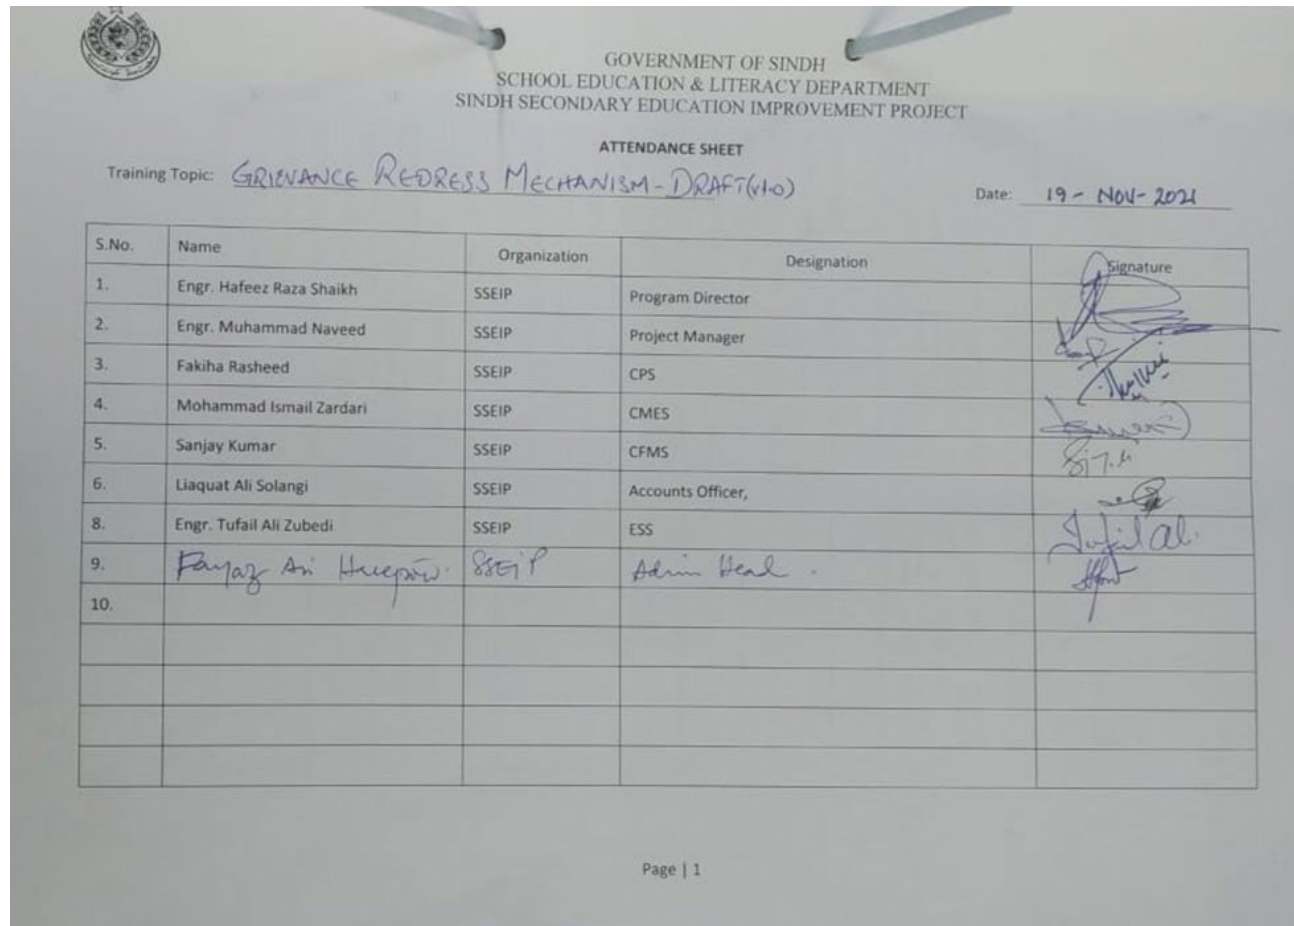 GOVERNMENT OF SINDH
SCHOOL EDUCATION & LITERACY DEPARTMENT
SINDH SECONDARY EDUCATION IMPROVEMENT PROJECT
ATTENDANCE SHEET
Training Topic: GRIEVANCE REDRESS MECHANISM - DRAFT (v1.0)
Date: 19 - NOV - 2021
S.No. Name Organization Designation Signature
1. Engr. Hafeez Raza Shaikh SSEIP Program Director
2. Engr. Muhammad Naveed SSEIP Project Manager
3. Fakiha Rasheed SSEIP CPS
4. Mohammad Ismail Zardari SSEIP CMES
5. Sanjay Kumar SSEIP CFMS
6. Liaquat Ali Solangi SSEIP Accounts Officer,
8. Engr. Tufail Ali Zubedi SSEIP ESS Tufail Ali
9. Fayaz SSEIP Admin Head .
10.
Page | 1